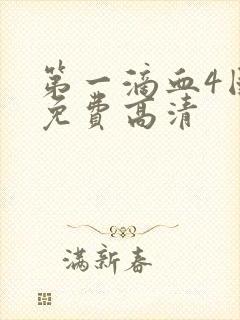 第一滴血4国
免费高清
满新春